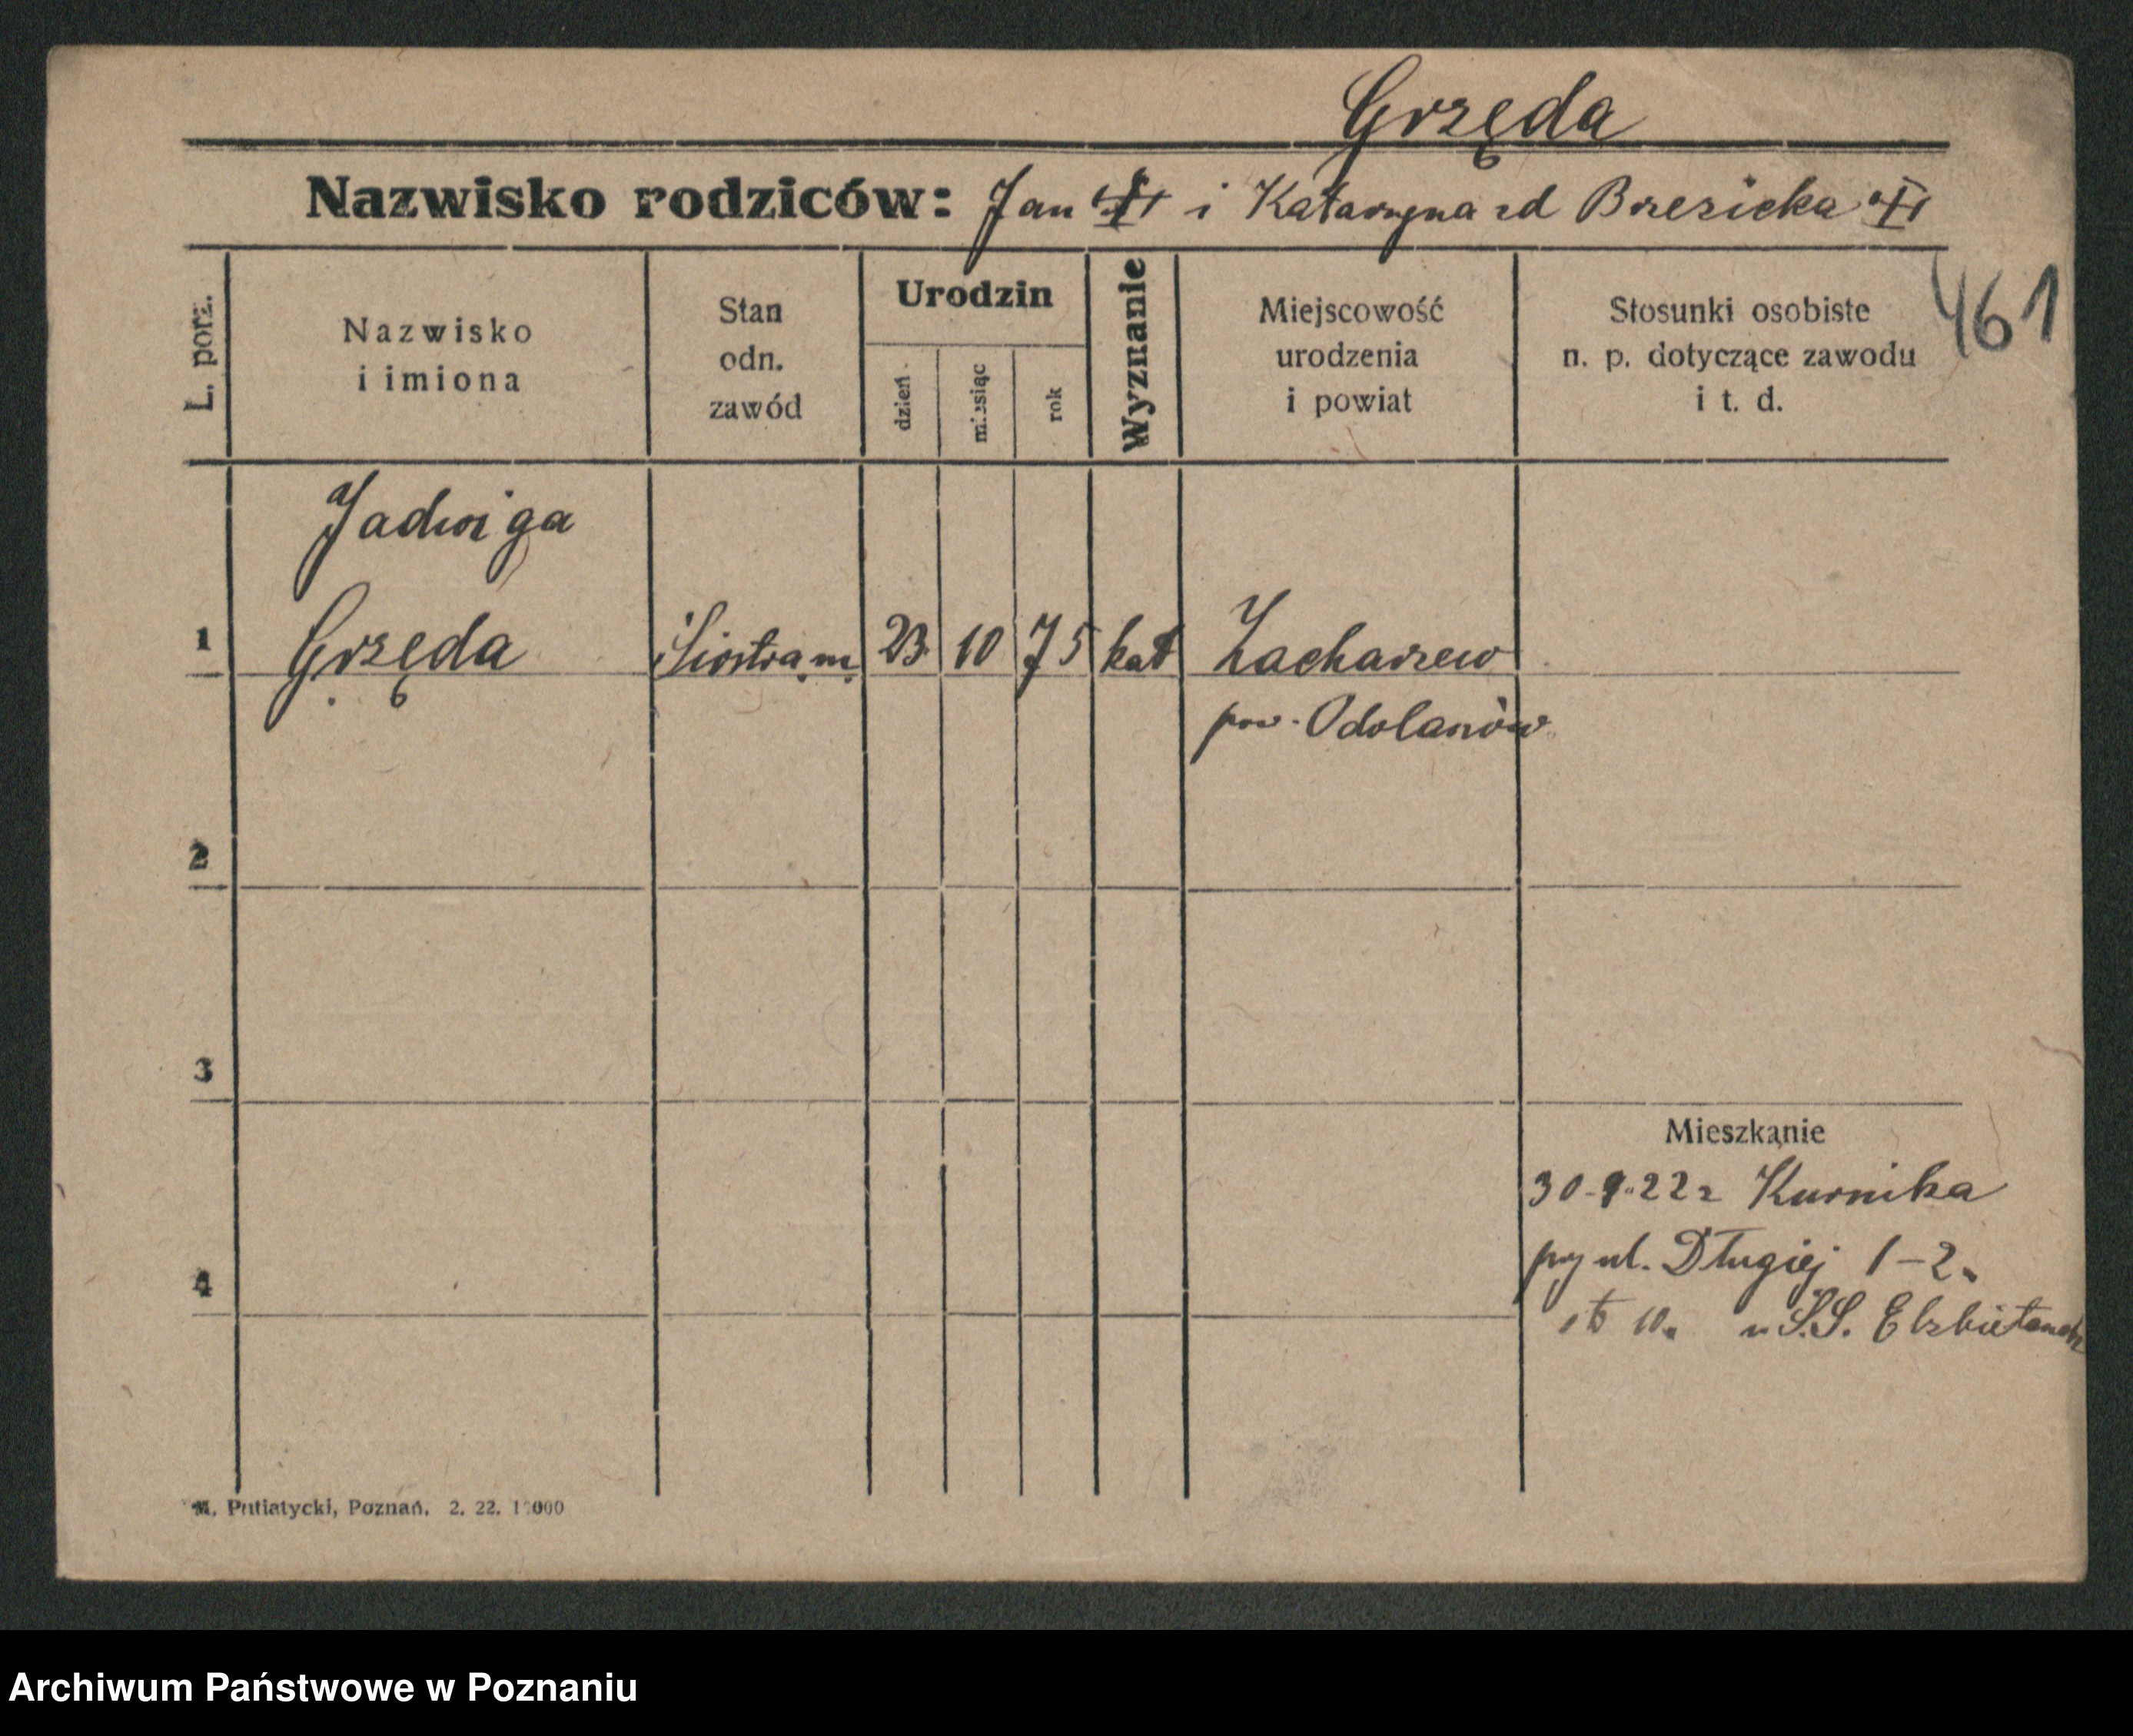 Grzęda
Nazwisko rodziców: Jan i Katarzyna zd Brzezicka
461
L. porz.
Nazwisko
i imiona
Stan
odn.
zawód
Urodzin
dzień
miesiąc
rok
Wyznanie
Miejscowość
urodzenia
i powiat
Stosunki osobiste
n. p. dotyczące zawodu
i t. d.
Jadwiga
1 Grzęda Siostra m. 23 10 75 kat Zacharzew
pow. Odolanów
2
3
Mieszkanie
30-9-22 z Kurnika
przy ul. Długiej 1-2.
4
10. u S.S. Elżbietanek
M. Putiatycki, Poznań. 2. 22.
Archiwum Państwowe w Poznaniu